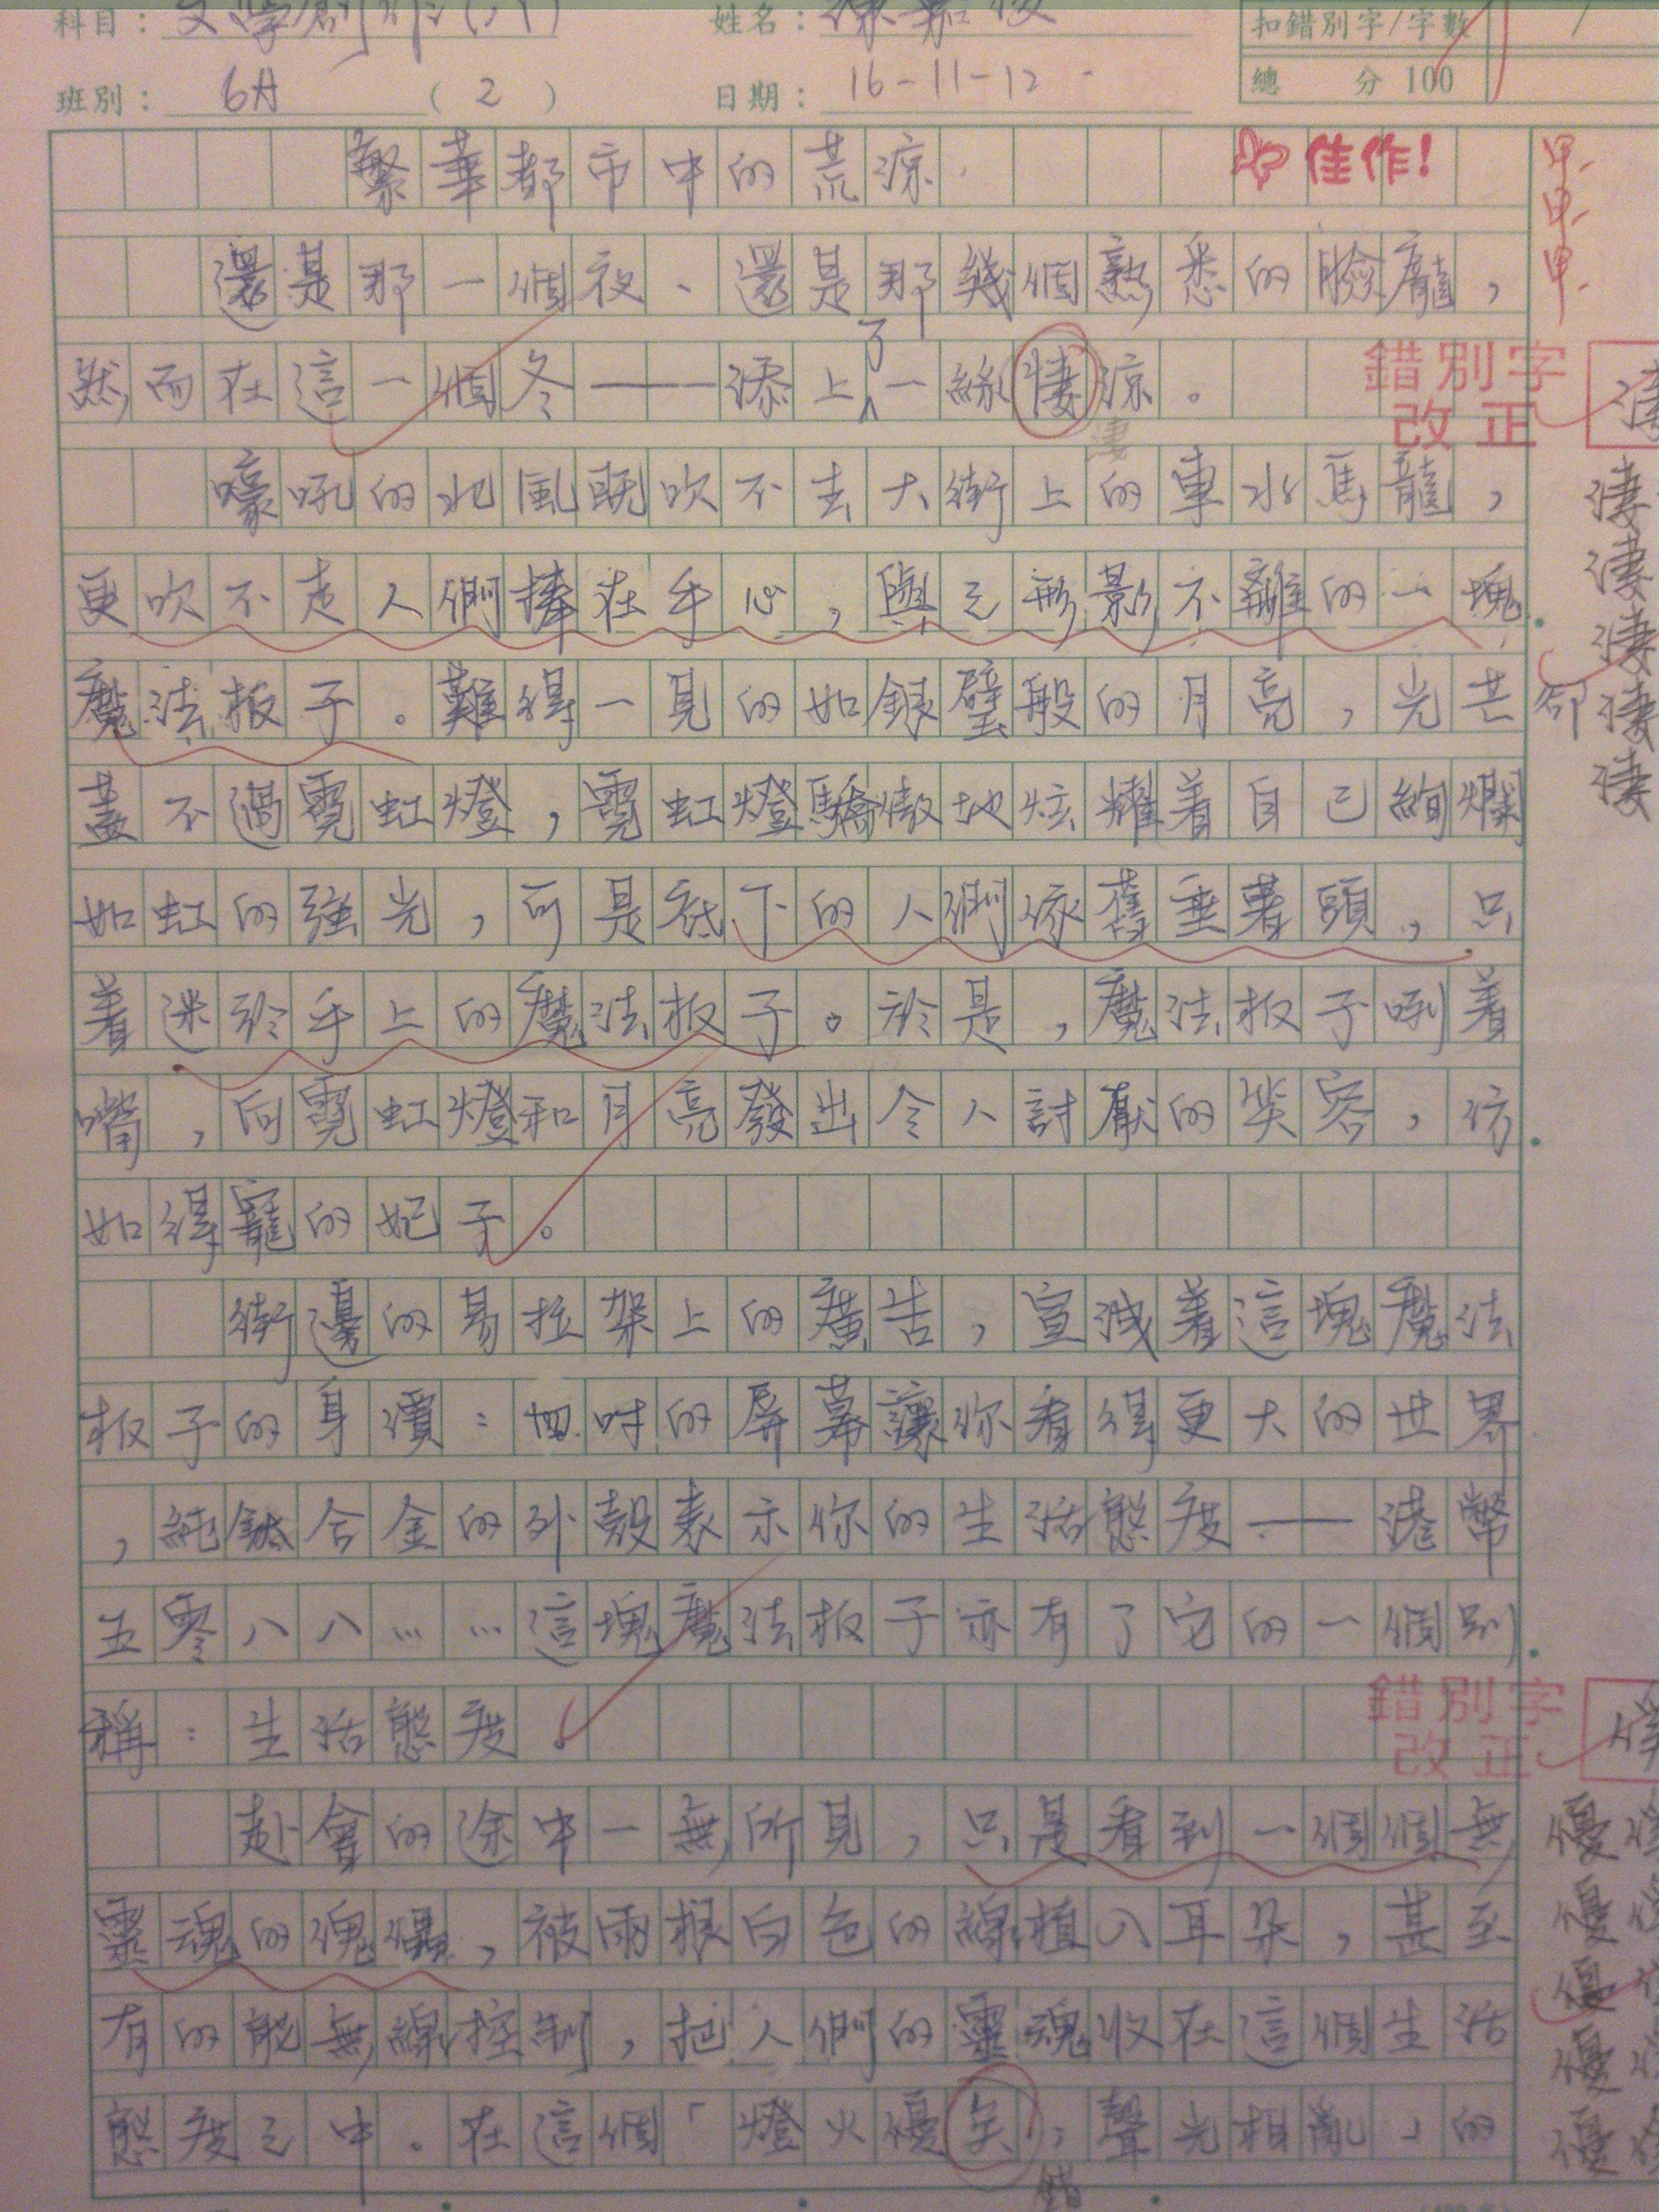 科目：文學創作(八)
姓名：陳嘉
扣錯別字/字數
班別：6A (2)
日期：16-11-12
總分 100
繁華都市中的荒涼
佳作！
甲
甲
甲
還是那一個夜、還是那幾個熟悉的臉龐，
然而在這一個冬——添上了一絲悽涼。
淒
錯別字
改正
淒
嚎吼的北風既吹不去大街上的車水馬龍，
淒
更吹不走人們捧在手心，與之形影不離的一塊
淒
淒
魔法板子。難得一見的如銀璧般的月亮，光芒卻
淒
蓋不過霓虹燈，霓虹燈驕傲地炫耀着自己絢爛
淒
如虹的強光，可是底下的人們依舊垂著頭，只
着迷於手上的魔法板子。於是，魔法板子咧着
嘴，向霓虹燈和月亮發出令人討厭的笑容，彷
如得寵的妃子。
街邊的易拉架上的廣告，宣洩着這塊魔法
板子的身價：四吋的屏幕讓你看得更大的世界
，純鈦合金的外殼表示你的生活態度——港幣
五零八八……這塊魔法板子亦有了它的一個別
稱：生活態度。
錯別字
改正
赴會的途中一無所見，只是看到一個個無
優
靈魂的傀儡，被兩根白色的線植入耳朵，甚至
優
有的能無線控制，把人們的靈魂收在這個生活
優
優
態度之中。在這個「燈火優矣，聲光相亂」的
優
錯